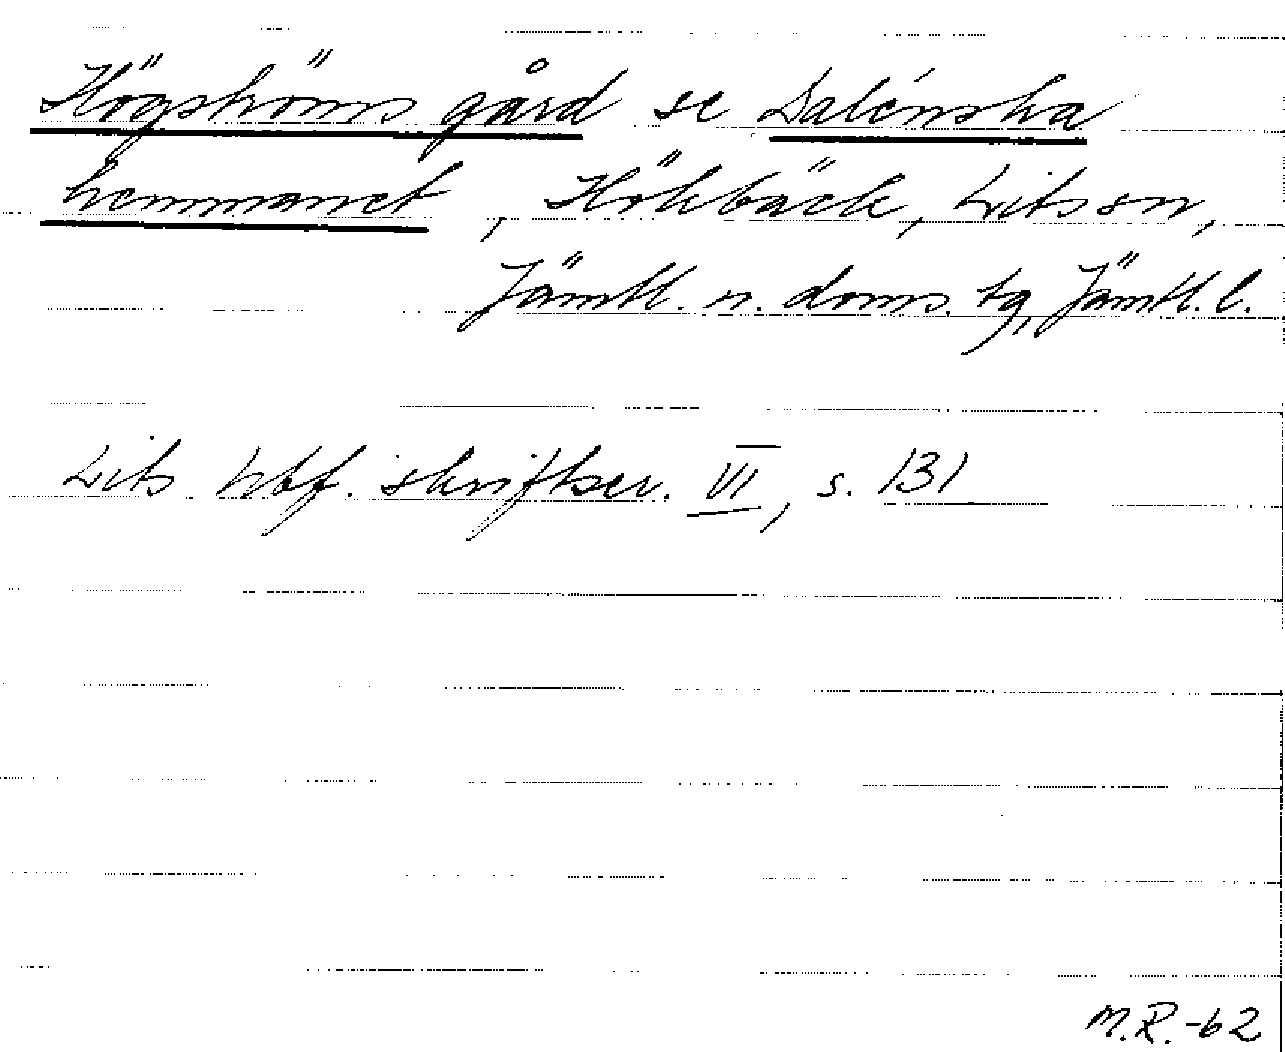 Högströms gård se Dalénska
hemmanet, Hökbäck, Lits sn,
Jämtl. n. doms. tg, Jämtl. l.
Lits hbf. skriftser. VI, s. 131
M.R.-62